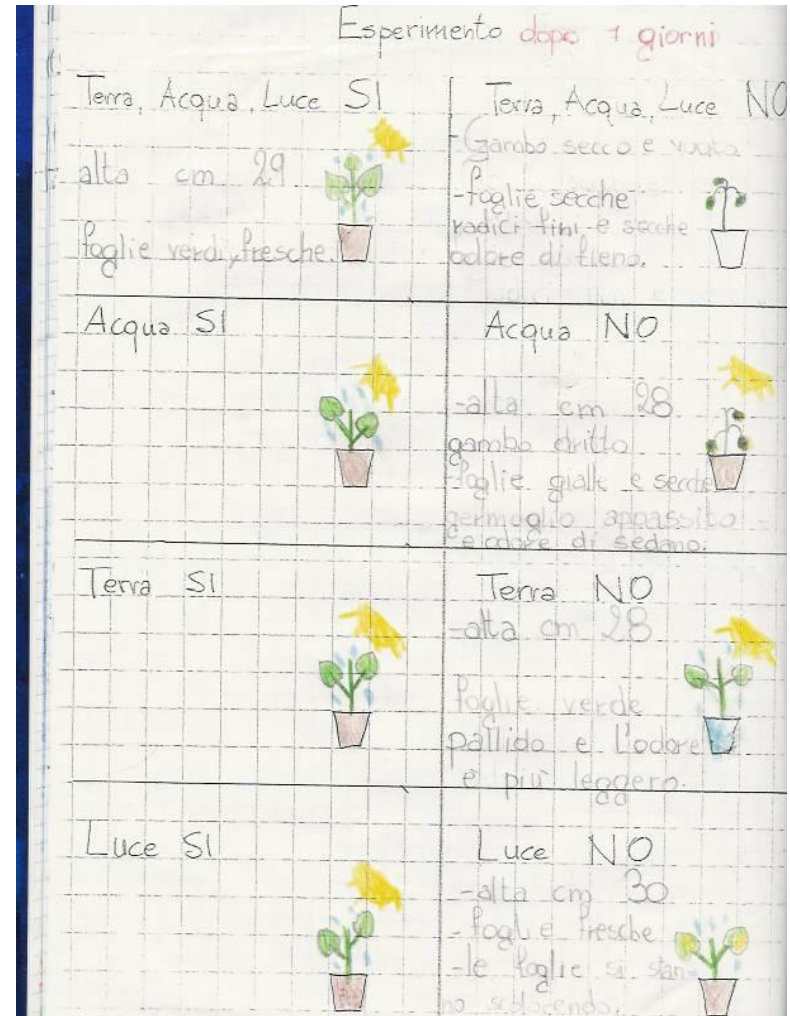 Esperimento dopo 7 giorni
Terra, Acqua, Luce SI
alta cm 29
foglie verdi, fresche.
Terra, Acqua, Luce NO
-Gambo secco e vuoto
-foglie secche
radici fini e secche
odore di fieno.
Acqua SI
Acqua NO
-alta cm 28
gambo dritto
-foglie gialle e secche
germoglio appassito
e odore di sedano.
Terra SI
Terra NO
-alta cm 28
foglie verde
pallido e l'odore
è più leggero.
Luce SI
Luce NO
-alta cm 30
-foglie fresche
-le foglie si stan
no scolorendo.